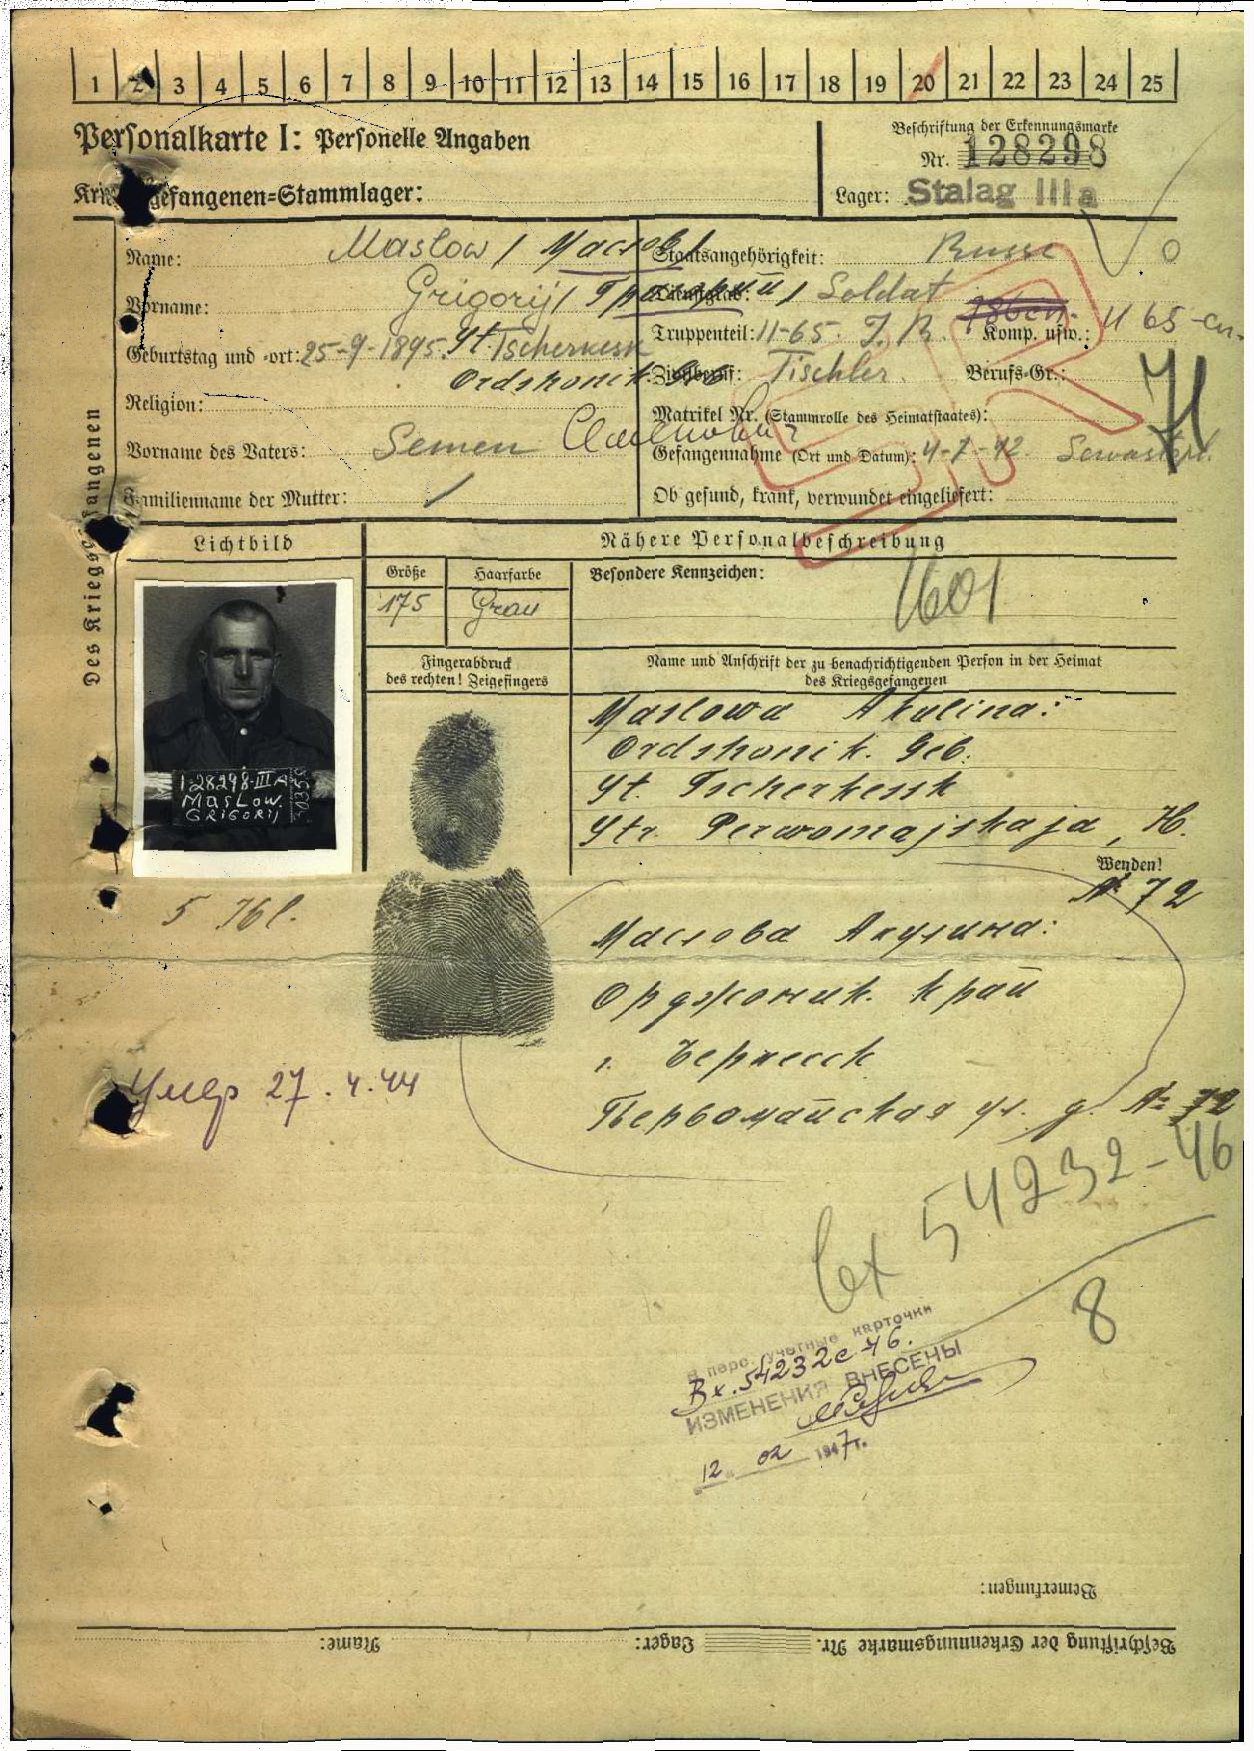 1 2 3 4 5 6 7 8 9 10 11 12 13 14 15 16 17 18 19 20 21 22 23 24 25
Personalkarte I: Personelle Angaben
Beschriftung der Erkennungsmarke
Nr. 128298
Kriegsgefangenen=Stammlager:
Lager: Stalag IIIa
Des Kriegsgefangenen
Name: Maslow / Маслов /
Staatsangehörigkeit: Russe
Vorname: Grigorij / Григорий /
Dienstgrad: Soldat
Geburtstag und -ort: 25-9-1895. St Tscherkesk
Ordshonik. Geb
Truppenteil: 11-65. J. R. Komp. usw.: 11 65-сп.
Zivilberuf: Tischler. Berufs-Gr.:
Religion:
Matrikel Nr. (Stammrolle des Heimatstaates):
Vorname des Vaters: Semen Семенович
Gefangennahme (Ort und Datum): 4-7-42
Familienname der Mutter: /
Ob gesund, krank, verwundet eingeliefert:
Lichtbild
Nähere Personalbeschreibung
Größe Haarfarbe Besondere Kennzeichen:
175 Grau
1601
Fingerabdruck
des rechten! Zeigefingers
Name und Anschrift der zu benachrichtigenden Person in der Heimat
des Kriegsgefangenen
128298-III A
MASLOW.
GRIGORIJ
Maslowa Akulina:
Ordshonik. Geb.
St. Tscherkessk
Str. Perwomajskaja, H.
Wenden!
№ 72
Маслова Акулина:
Орджоник. край
г. Черкесск
Первомайская ул. д. № 72
Умер 27.4.44
вх 54232-46
8
В перс. учетные карточки
Вх. 54232с 46.
ИЗМЕНЕНИЯ ВНЕСЕНЫ
12 02 1947г.
Bemerkungen:
Beschriftung der Erkennungsmarke Nr. Lager: Name: